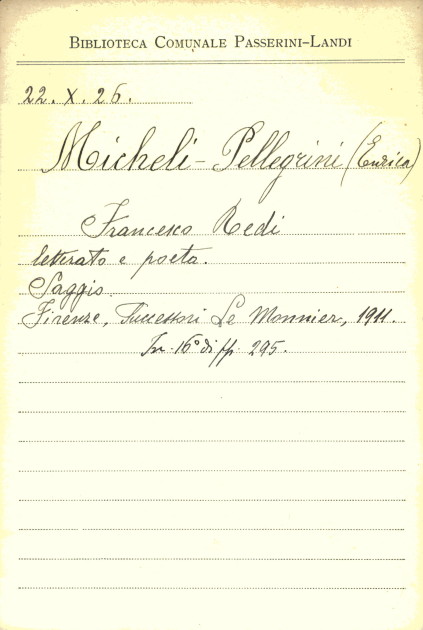 BIBLIOTECA COMUNALE PASSERINI-LANDI
22. X. 25.
Micheli-Pellegrini (Enrica)
Francesco Redi
letterato e poeta.
Saggio.
Firenze, Successori Le Monnier, 1911.
In-16° di pp. 295.